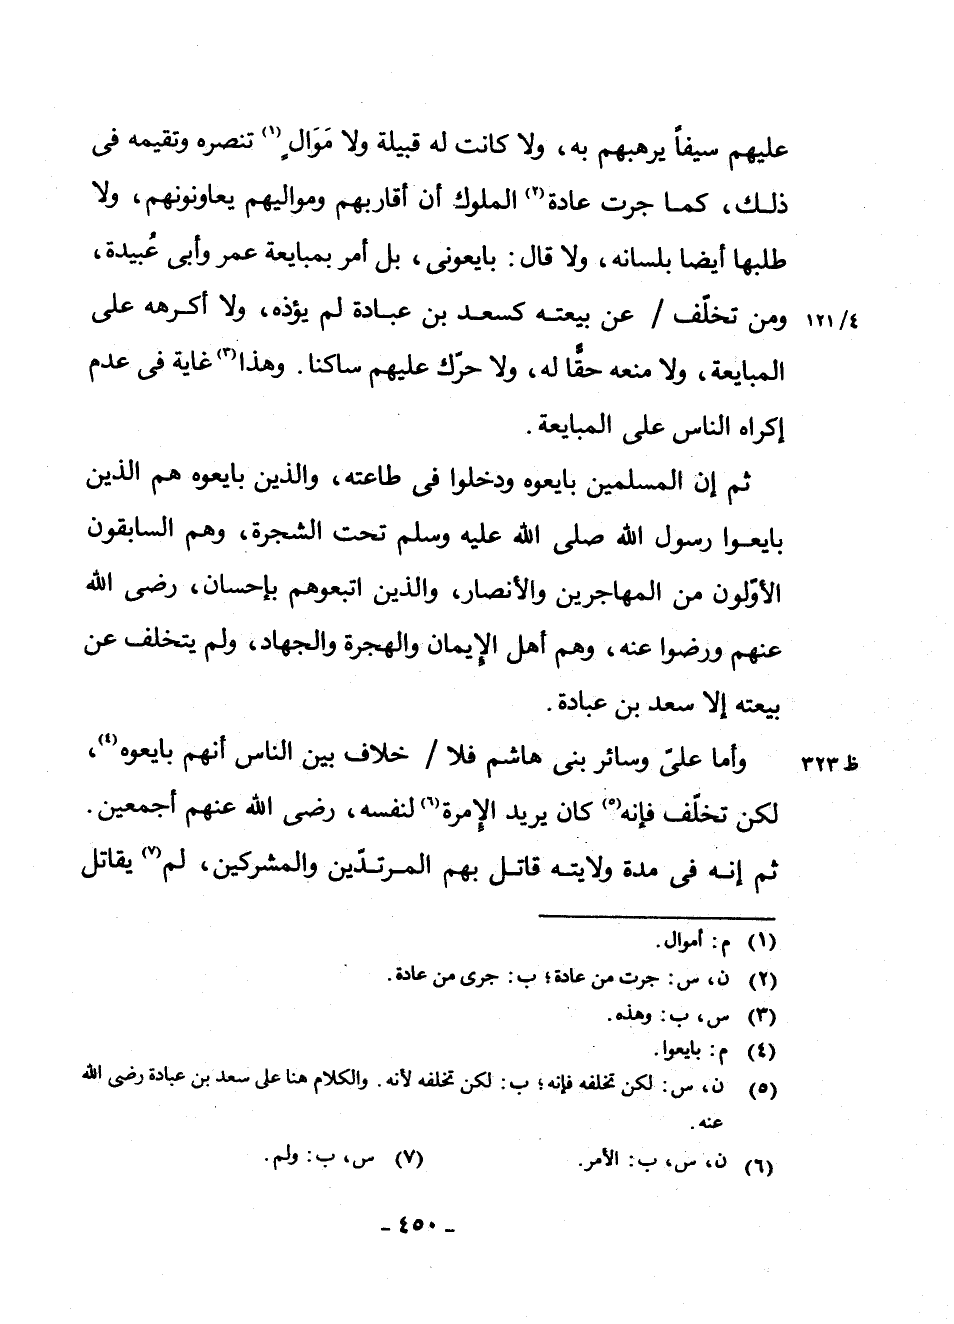 عليهم سيفاً يرهبهم به، ولا كانت له قبيلة ولا مَوَالٍ(١) تنصره وتقيمه فى
ذلك، كما جرت عادة(٢) الملوك أن أقاربهم ومواليهم يعاونونهم، ولا
طلبها أيضا بلسانه، ولا قال: بايعونى، بل أمر بمبايعة عمر وأبى عُبيدة،
ومن تخلّف / عن بيعته كسعد بن عبادة لم يؤذه، ولا أكرهه على ٤/ ١٢١
المبايعة، ولا منعه حقًّا له، ولا حرّك عليهم ساكنا. وهذا(٣) غاية فى عدم
إكراه الناس على المبايعة.
ثم إن المسلمين بايعوه ودخلوا فى طاعته، والذين بايعوه هم الذين
بايعوا رسول الله صلى الله عليه وسلم تحت الشجرة، وهم السابقون
الأوّلون من المهاجرين والأنصار، والذين اتبعوهم بإحسان، رضى الله
عنهم ورضوا عنه، وهم أهل الإيمان والهجرة والجهاد، ولم يتخلف عن
بيعته إلا سعد بن عبادة.
وأما علىّ وسائر بنى هاشم فلا / خلاف بين الناس أنهم بايعوه(٤)، ظ ٣٢٣
لكن تخلّف فإنه(٥) كان يريد الإمرة(٦) لنفسه، رضى الله عنهم أجمعين.
ثم إنه فى مدة ولايته قاتل بهم المرتدّين والمشركين، لم(٧) يقاتل
(١) م: أموال.
(٢) ن، س: جرت من عادة؛ ب: جرى من عادة.
(٣) س، ب: وهذه.
(٤) م: بايعوا.
(٥) ن، س: لكن تخلفه فإنه؛ ب: لكن تخلفه لأنه. والكلام هنا على سعد بن عبادة رضى الله
عنه.
(٦) ن، س، ب: الأمر. (٧) س، ب: ولم.
- ٤٥٠ -